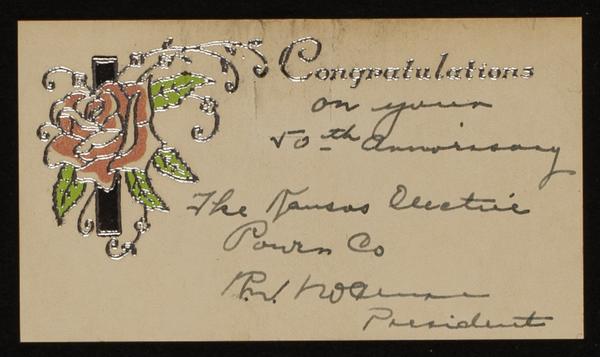 Congratulations
on your
50th Anniversary
The Kansas Electric
Power Co
President